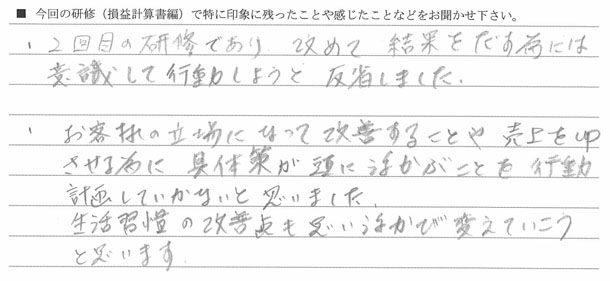 ■ 今回の研修（損益計算書編）で特に印象に残ったことや感じたことなどをお聞かせ下さい。
、2回目の研修であり 改めて 結果をだす為には
意識して行動しようと 反省しました.
、お客様の立場になって改善することや 売上をup
させる為に 具体策が頭に浮かぶことを 行動
計画していかないと 思いました.
生活習慣の改善点も思い浮かび変えていこう
と思います.